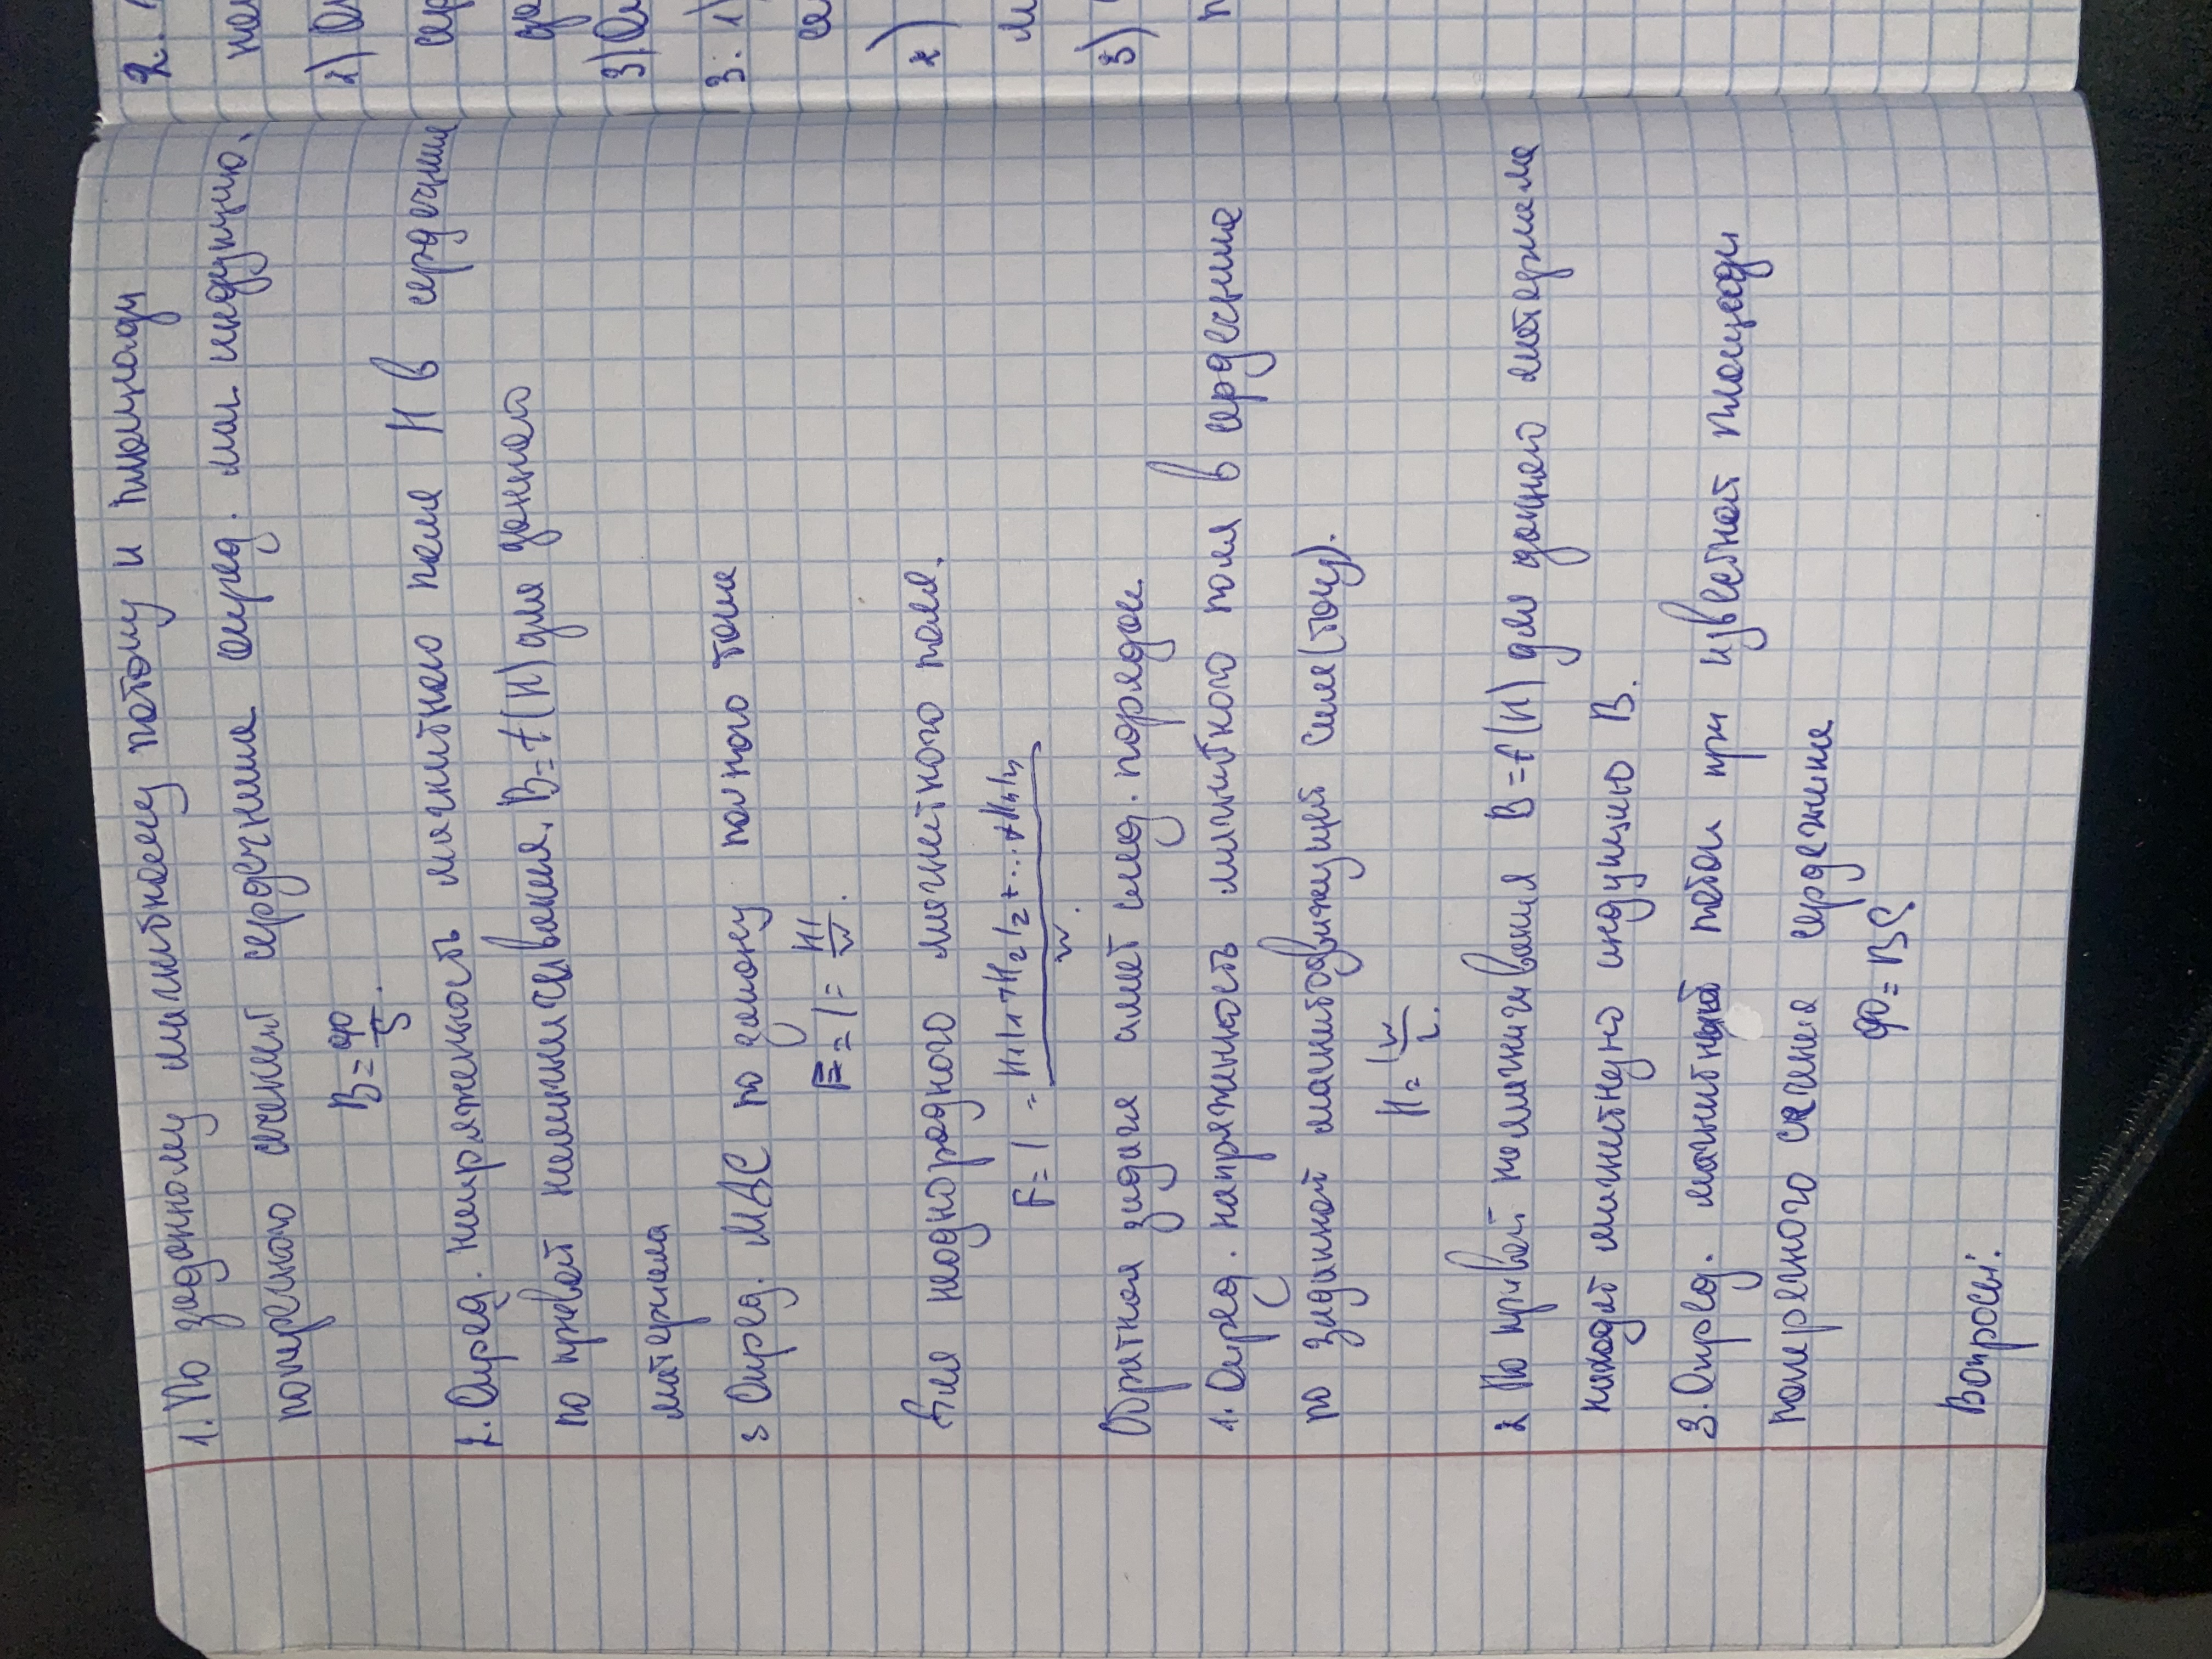 1. По заданному магнитному потоку и площади
поперечного сечения сердечника опред. маг. индукцию.
B = Ф/S.
2. Опред. напряженность магнитного поля H в сердечнике
по кривой намагничивания. B = f(H) для данного
материала
3 Опред. МДС по закону полного тока
F = I = Hl/w.
Для неоднородного магнитного поля.
F = I = H1l1 + H2l2 + ... + Hnln/w.
Обратная задача имеет след. порядок
1. Опред. напряженность магнитного поля в сердечнике
по заданной магнитодвижущей силе (току).
H = Iw/L.
2 По кривой намагничивания B = f(H) для данного материала
находят магнитную индукцию B.
3. Опред. магнитный поток при известной площади
поперечного сечения сердечника
Ф = BS.
Вопросы:
2.
2)
3)
3. 1)
2)
3)